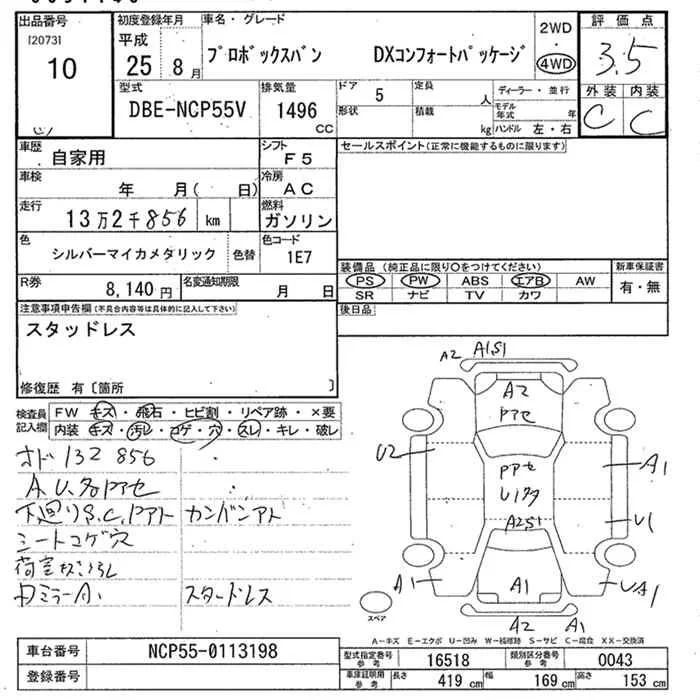 出品番号
[2073]
10
初度登録年月
平成
25 8月
車名・グレード
プロボックスバン DXコンフォートパッケージ
2WD
・
4WD
評価点
3.5
外装 内装
C C
型式
DBE-NCP55V
排気量
1496
CC
ドア
5
形状
定員
人
積載
kg
ディーラー・並行
モデル年式 年
ハンドル 左・右
車歴
自家用
シフト
F5
セールスポイント(正常に機能するものに限ります)
車検
年 月( 日)
冷房
AC
走行
13万2千856 km
燃料
ガソリン
色
シルバーマイカメタリック
色替
色コード
1E7
R券
8,140円
名変通知期限
月 日
装備品(純正品に限り○をつけてください)
PS PW ABS エアB AW
SR ナビ TV カワ
新車保証書
有・無
注意事項申告欄(不具合内容等は具体的に記入して下さい)
スタッドレス
後日品
修復歴 有〔箇所 〕
検査員記入欄
FW キズ・飛石・ヒビ割・リペア跡・×要
内装 キズ・汚レ・コゲ・穴・スレ・キレ・破レ
オド132856
A.U.多Pアセ
下廻りS.C.Pアト カンバンアト
シートコゲ穴
荷室
ミラーA1 スタッドレス
A2 A1S1
A2
Pアセ
U2
Pアセ
A1
U1
A2S1
A1
A1
UA1
A2 A1
スペア
A-キズ E-エクボ U-凹み W-補修跡 S-サビ C-腐食 XX-交換済
車台番号
NCP55-0113198
登録番号
型式指定番号
参考
16518
類別区分番号
参考
0043
車庫証明用
参考
長さ 419 cm
幅 169 cm
高さ 153 cm